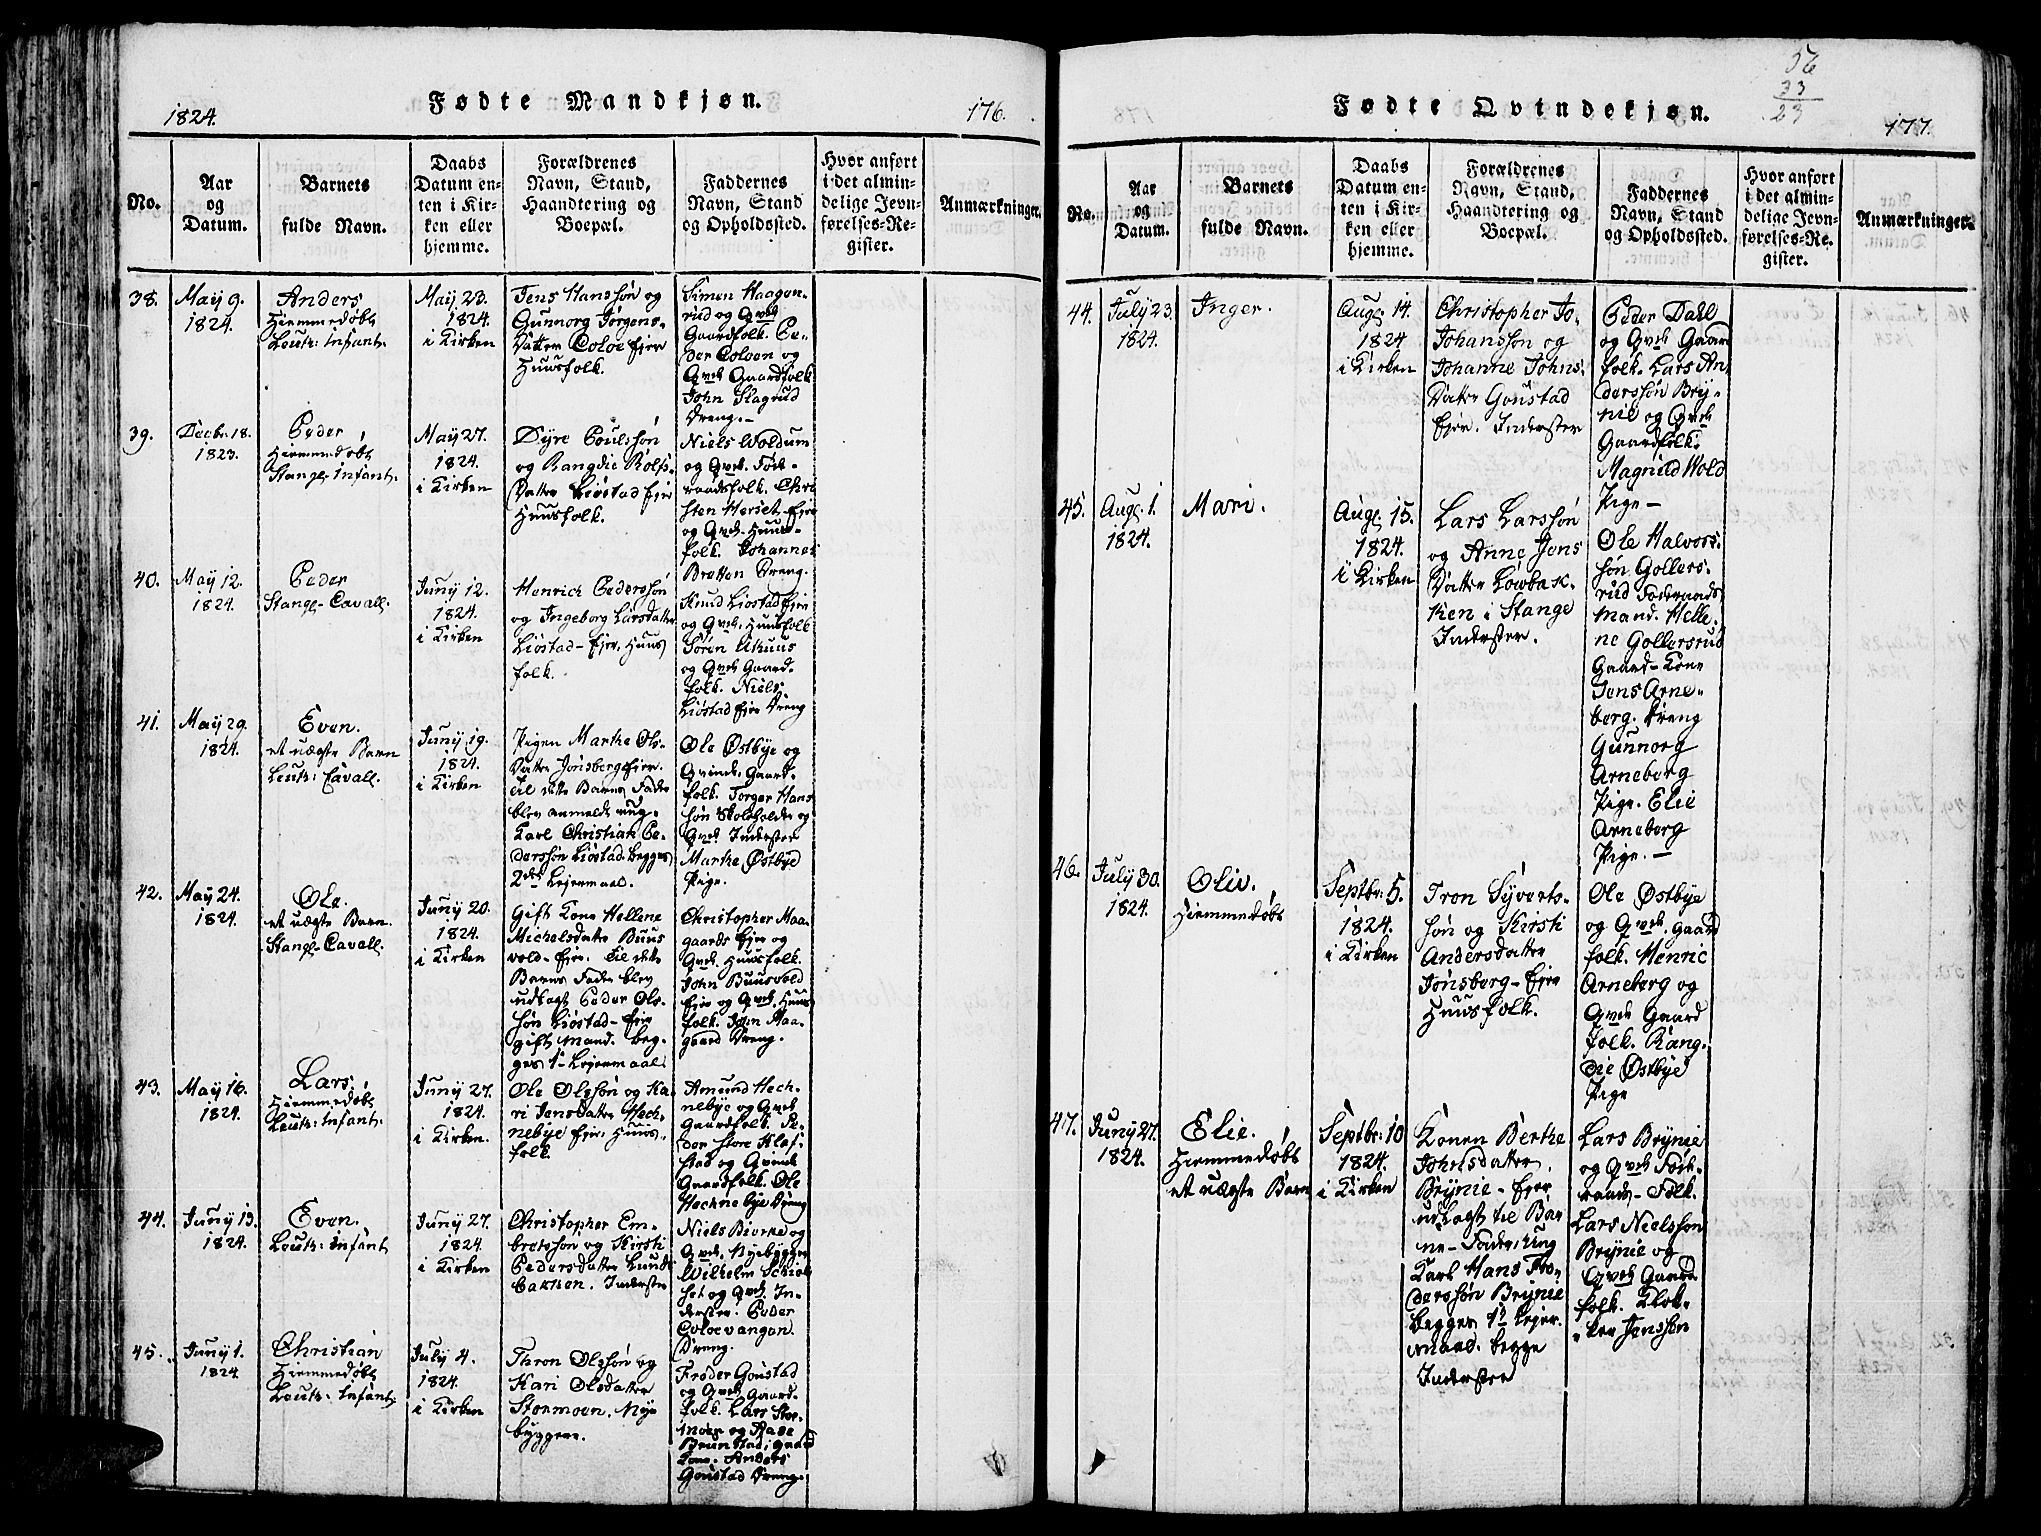 1824.
Fødte Mandkjøn.
176.
No.
Aar
og
Datum.
Barnets
fulde Navn.
Daabs
Datum en-
ten i Kir-
ken eller
hjemme.
Forældrenes
Navn, Stand,
Haandtering og
Boepæl.
Faddernes
Navn, Stand
og Opholdssted.
Hvor anført
i det almin-
delige Jevn-
førelses-Re-
gister.
Anmærkninger.
38.
May 9.
1824.
Anders
Hiemmedøbt
Leuts: Infant.
May 23.
1824.
i Kirken
Jens Hanssøn og
Gunnorg Jørgens-
Datter Coloe Ejer
Huusfolk.
Simen Haagen-
rud og Qvde
Gaardfolk. Pe-
der Coloen og
Qvde Gaardfolk
John Slagrud
Dreng.-
39.
Decbr. 18.
1823.
Peder
Hiemmedøbt
Stange-Infant.
May 27.
1824.
i Kirken
Dyre Poulssøn
og Rangdie Rolfs-
Datter Liøstad Ejer
Huusfolk.
Niels Woldum
og Qvde. Føde-
raadsfolk. Chri
sten Heriet-Ejer
og Qvde. Huus-
folk. Johannes
Bretten Dreng.
40.
May 12.
1824.
Peder
Stange-Cavall.
Juny 12.
1824.
i Kirken
Henrich Pederssøn
og Ingeborg Larsdatter
Liøstad-Ejer. Huus
folk.
Knud Liøstad Ejer
og Qvde. Huusfolk
Søren Ukuus
og Qvde Gaard-
folk. Niels
Liøstad Ejer Dreng
41.
May 29.
1824.
Even.
et uægte Barn
Leuts: Cavall.
Juny 19.
1824.
i Kirken
Pigen Marthe Ols-
Datter Jønsberg Ejer.
Til dette Barns Fader
blev anmeldt ung-
Karl Christian Pe-
derssøn Liøstad. begges
2det Lejermaal.
Ole Østbye og
Qvinde. Gaard-
folk. Torger Hans
søn Skoleholder og
Qvde Inderster
Marthe Østbye
Pige.
42.
May 24.
1824.
Ole.
et uægte Barn.
Stange-Cavall.
Juny 20.
1824.
i Kirken
Gift Kone Hellene
Michelsdatter Buus
vold-Ejer. Til dette
Barns Fader blev
udlagt Peder Ols-
søn Liøstad-Ejer
gift mand. beg-
ges 1te Lejermaal
Christopher Maa-
gaards Ejer og
Qvde. Huusfolk.
John Buusvold
Ejer og Qvde. Huus
folk. John Maa-
gaard Dreng.
43.
May 16.
1824.
Lars
Hiemmedøbt
Leuts: Infant.
Juny 27.
1824.
i Kirken.
Ole Olssøn og Ka
ri Jensdatter Hech-
nebye Ejer. Huus-
folk.
Amund Hech-
nebye og Qvde
Gaardfolk. Pe-
der store Klaf-
stad og Qvinde
Gaardfolk. Ole
Hechnebye Dreng
44.
Juny 13.
1824.
Even.
Leuts: Infant
Juny 27.
1824.
i Kirken
Christopher Em-
bretssøn og Kirsti
Pedersdatter Lunde
bakken. Inderster
Niels Biørke og
Qvde. Nyebygger
Wilhelm Schiol
set og Qvde. In-
derster. Peder
Coloevangen.
Dreng.
45.
Juny 1.
1824.
Christian
Hiemmedøbt
Leuts: Infant.
July 4.
1824.
i Kirken
Thron Olssøn og
Kari Olsdatter
Stormoen. Nye
byggere.
Frøder Gonstad
og Qvde Gaard-
folk. Lars Stor-
moen og Aase
Brunstad, Gaard
Kone. Anders
Gonstad Dreng.
Fødte Qvindekjøn.
56
33
23
177.
No.
Aar
og
Datum.
Barnets
fulde Navn.
Daabs
Datum en-
ten i Kir-
ken eller
hjemme.
Forældrenes
Navn, Stand,
Haandtering og
Boepæl.
Faddernes
Navn, Stand
og Opholdssted.
Hvor anført
i det almin-
delige Jevn-
førelses-Re-
gister.
Anmærkninger.
44.
July 23.
1824.
Inger.
Aug. 14.
1824
i Kirken
Christopher Jo-
Johanssøn og
Johanne Johns-
Datter Gonstad
Ejer. Inderster
Peder Dahl
og Qvde Gaard
folk. Lars An
derssøn Bry-
nie og Qvde
Gaardfolk.
Magnild Wold
Pige-
45.
Aug. 1.
1824.
Mari.
Aug. 15.
1824.
i Kirken
Lars Larssøn
og Anne Jens
Datter Løwbak-
ken i Stange
Inderster.
Ole Halvors-
søn Gollers-
rud Føderaads
mand. Helle-
ne Gollersrud
Gaard-Kone
Jens Arne-
berg. Dreng
Gunnorg
Arneberg
Pige. Elie
Arneberg
Pige.-
46.
July 30.
1824.
Oliv.
Hiemmedøbt
Septbr. 5.
1824.
i Kirken
Tron Syverts-
søn og Kirsti
Andersdatter
Jønsberg-Ejer
Huusfolk.
Ole Østbye
og Qvde. Gaard
folk. Henric
Arneberg og
Qvde Gaard
folk. Rang-
die Østbye
Pige
47.
Juny 27.
1824.
Elie.
Hiemmedøbt
et uægte Barn
Septbr. 10
1824.
i Kirken
Konen Berthe
Johnsdatter.
Brynie-Ejer
udlagt til Bar
ne-Fader Ung
Karl Hans Pe-
derssøn Brynie
begges 1te Lejer-
maal. begge
Inderster
Lars Brynie
og Qvde Føde-
raads-Folk.
Lars Nielssøn
Brynie og
Qvde Gaard
folk. Klok-
ker Jenssøn